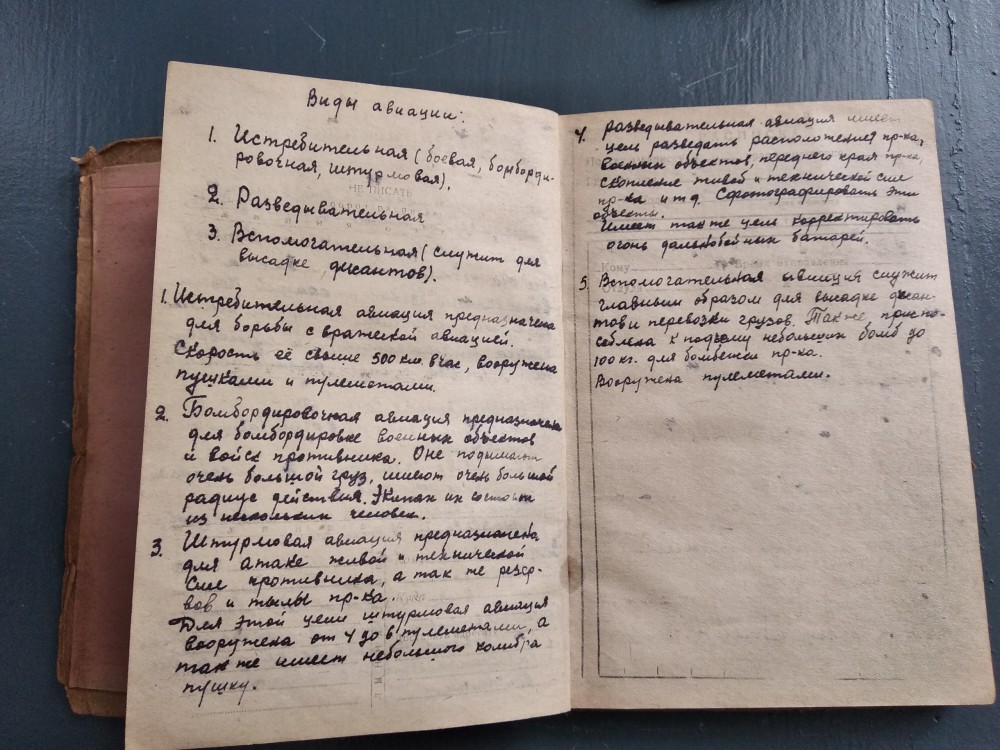 Виды авиации:
1. Истребительная (боевая, бомборди-
ровочная, штурмовая).
НЕ ПИСАТЬ
2. Разведывательная
3. Вспомогательная (служит для
высадке дисантов).
1. Истребительная авиация предназначена
для борьбы с вражеской авиацией.
Скорость её свыше 500 км. в час, вооружена
пушками и пулеметами.
2. Бомбордировочная авиация предназначена
для бомбордировке военных объектов
и войск противника. Оне подымают
очень большой груз, имеют очень большой
радиус действия. Экипаж их состоит
из нескольких человек.
3. Штурмовая авиация предназначена
для атаке живой и технической
силе противника, а так же резер-
вов и тылы пр-ка.
Для этой цели штурмовая авиация
вооружена от 4 до 6 пулеметами, а
так же имеет небольшого колибра
пушку.
4. Разведывательная авиация имеет
цель разведать расположения пр-ка,
военных объектов, переднего края пр-ка,
скопление живой и технической силе
пр-ка и т.д. Сфотографировать эти
объекты.
Имеет так же цель корректировать
огонь дальнобойных батарей.
Кому
5. Вспомогательная авиация служит
главным образом для высадке десан-
тов и перевозки грузов. Так же приспо-
соблена к подъему небольших бомб до
100 кг. для бомбежки пр-ка.
Вооружена пулеметами.